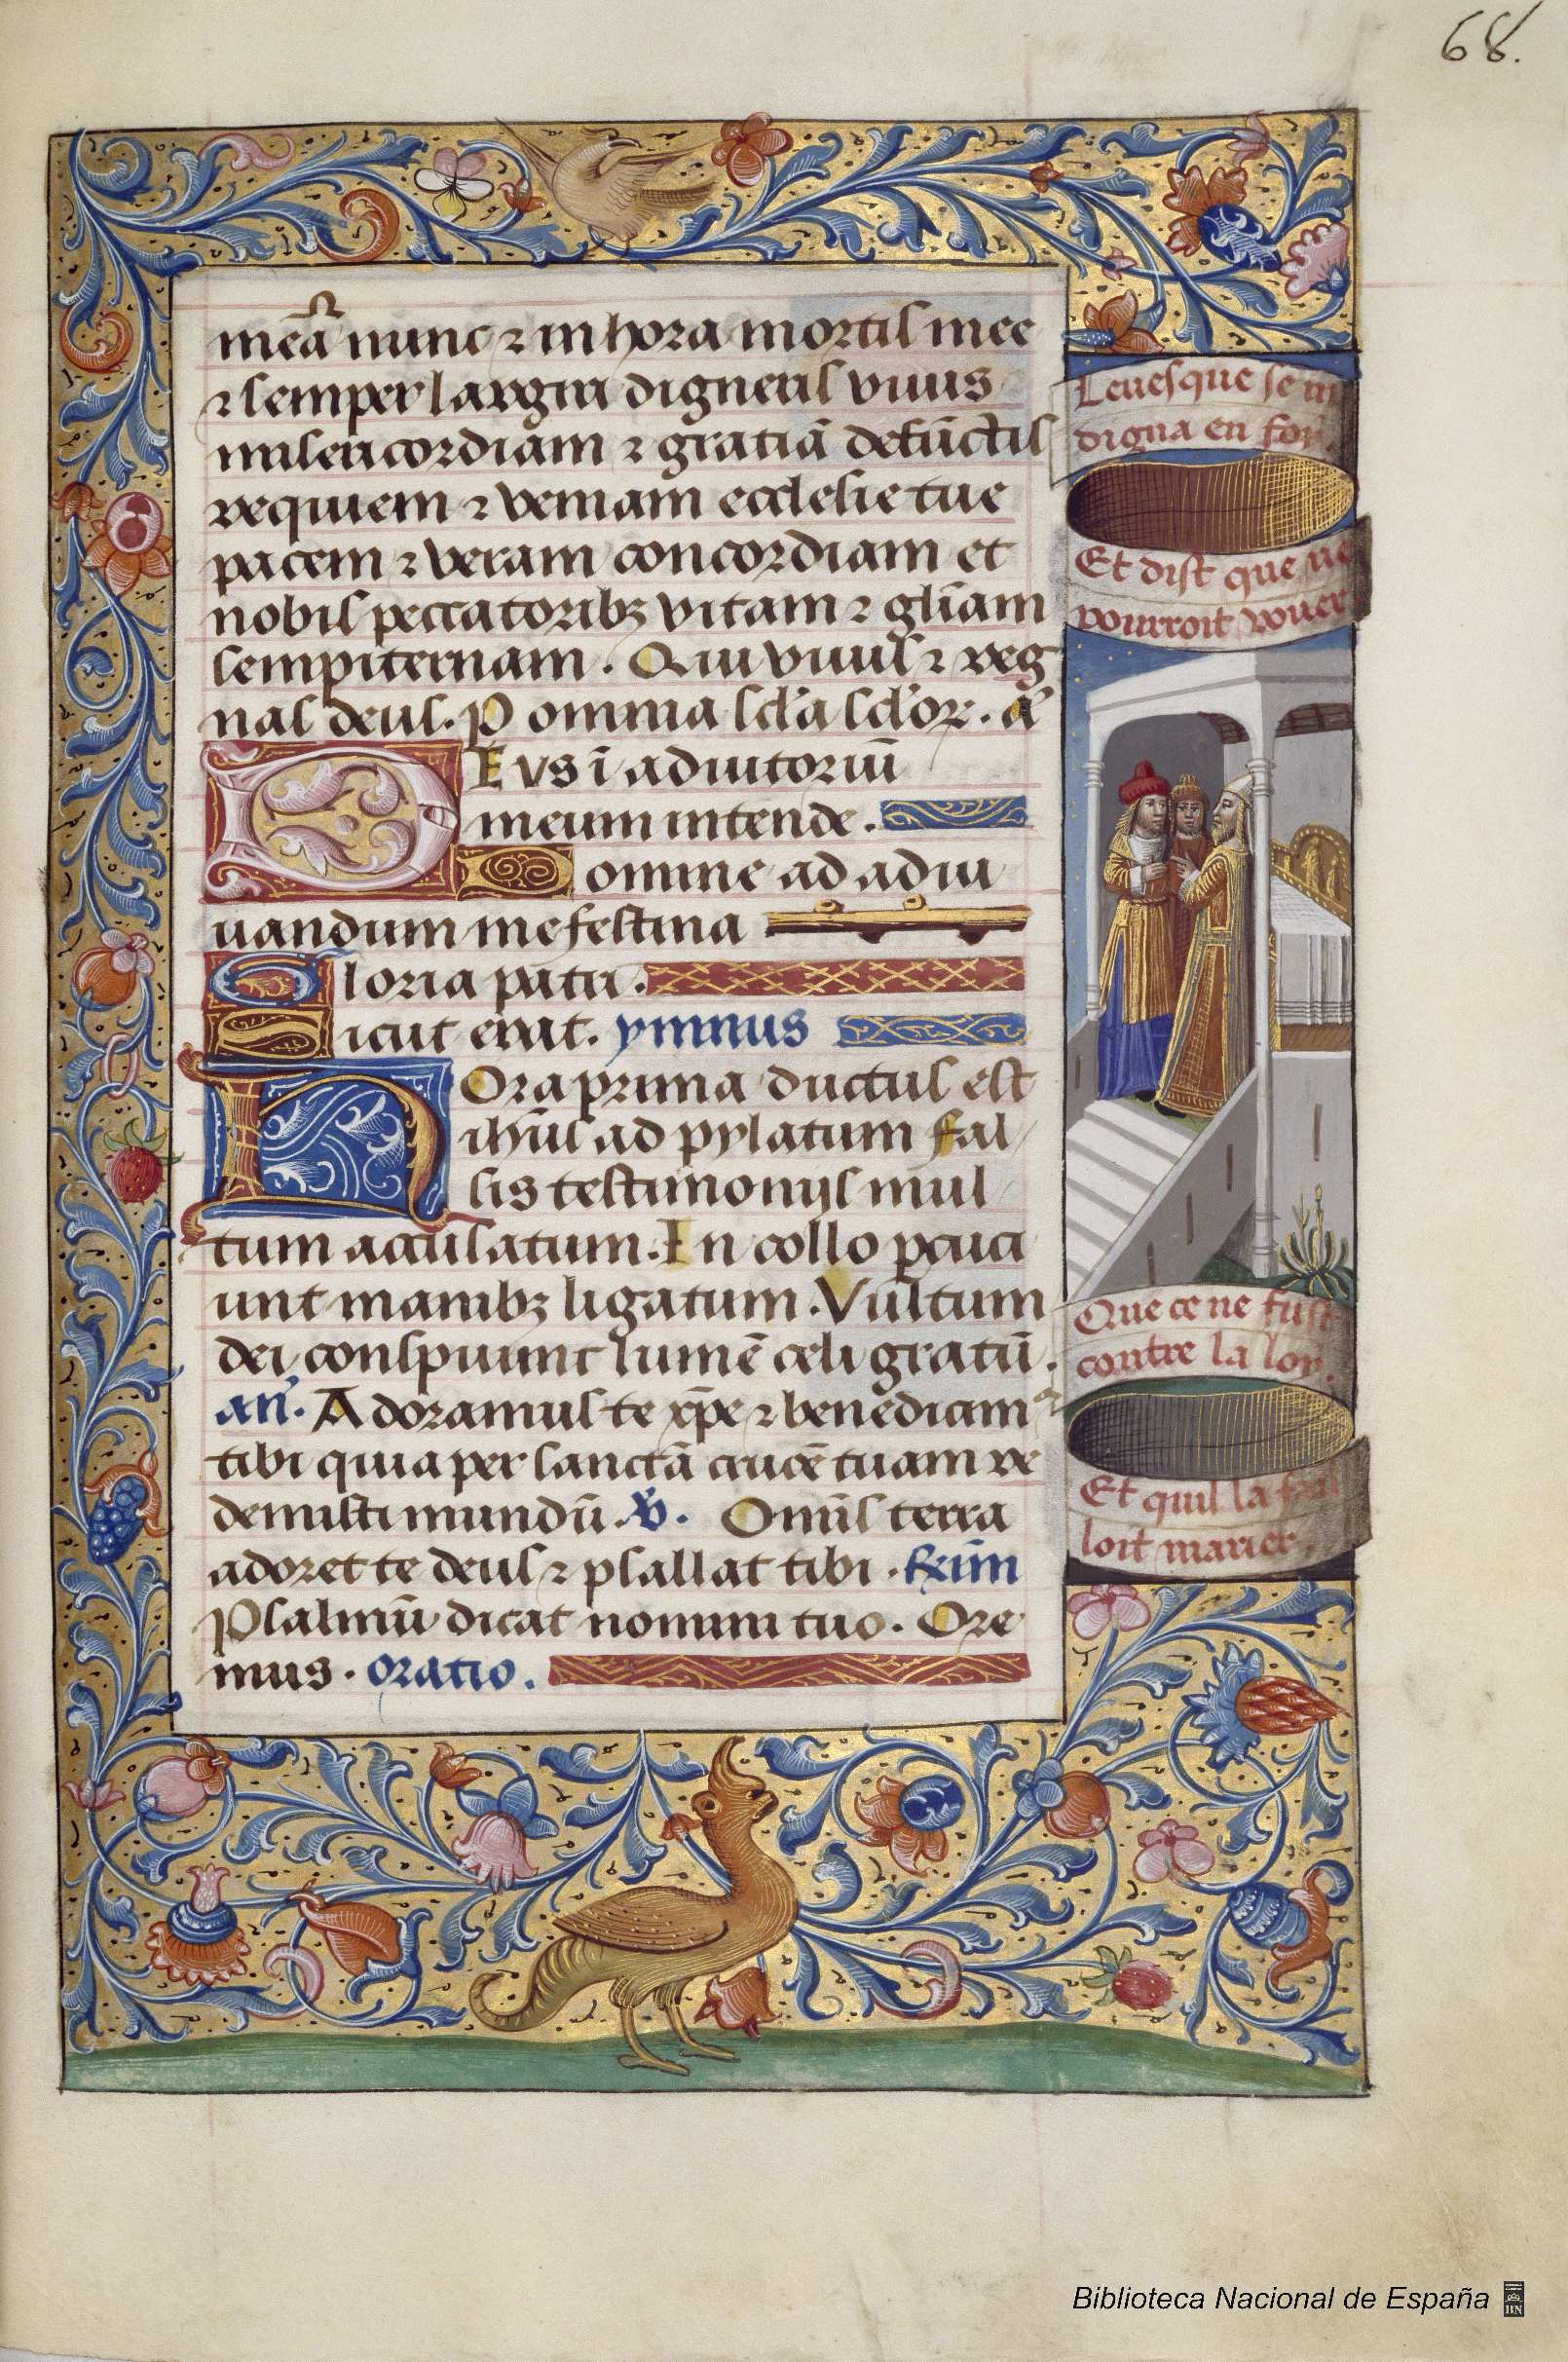 68.
meā nunc ⁊ in hora mortis mee
⁊ semper largiri digneris viuis
misericordiam ⁊ gratiā defūctis
requiem ⁊ veniam ecclesie tue
pacem ⁊ veram concordiam et
nobis peccatoribꝫ vitam ⁊ gl̄iam
sempiternam. Qui viuis ⁊ reg
nas deus. P omnia sc̄la sc̄lor̄. ā
Evs ī adiutoriū
meum intende.
omine ad adiu
uandum me festina
loria patri.
Sicut erat. ymnus
HOra prima ductus est
ihūs ad pylatum fal
sis testimonijs mul
tum accusatum. In collo ꝑcuci
unt manibꝫ ligatum. Vultum
dei conspuunt lumē celi gratū.
an̄. Adoramus te xp̄e ⁊ benedicam᷒
tibi quia per sanctā crucē tuam re
demisti mundū. V̄. Omīs terra
adoret te deus ⁊ psallat tibi.
Psalmū dicat nomini tuo. Ore
mus. oratio.
Leuesque se in
digna en for.
Et dist que ne
pourroit vouer
Que ce ne fust
contre la loy.
Et quil la fal
loit marier.
Biblioteca Nacional de España